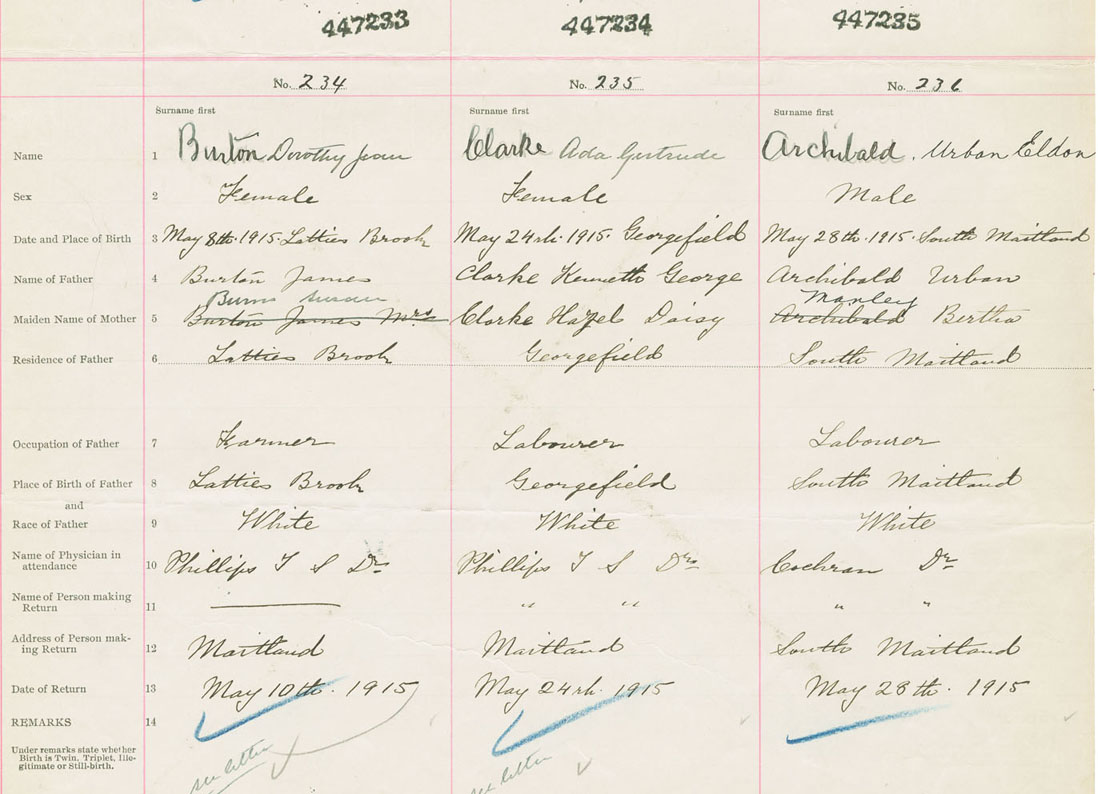 447233 447234 447235
No. 234 No. 235 No. 236
Surname first Surname first Surname first
Name 1 Burton Dorothy Jean Clarke Ada Gertrude Archibald, Urban Eldon
Sex 2 Female Female Male
Date and Place of Birth 3 May 8th. 1915. Latties Brook May 24rh. 1915. Georgefield May 28th. 1915. South Maitland
Name of Father 4 Burton James Clarke Kenneth George Archibald Urban
Burns Susan Manley
Maiden Name of Mother 5 Burton James Mrs Clarke Hazel Daisy Archibald Bertha
Residence of Father 6 Latties Brook Georgefield South Maitland
Occupation of Father 7 Farmer Labourer Labourer
Place of Birth of Father 8 Latties Brook Georgefield South Maitland
and
Race of Father 9 White White White
Name of Physician in
attendance 10 Phillips T S Dr Phillips T S Drs Cochran Dr
Name of Person making
Return 11 " " " "
Address of Person mak-
ing Return 12 Maitland Maitland South Maitland
Date of Return 13 May 10th. 1915 May 24rh. 1915 May 28th. 1915
REMARKS 14
Under remarks state whether
Birth is Twin, Triplet, Ille-
gitimate or Still-birth.
see letter see letter